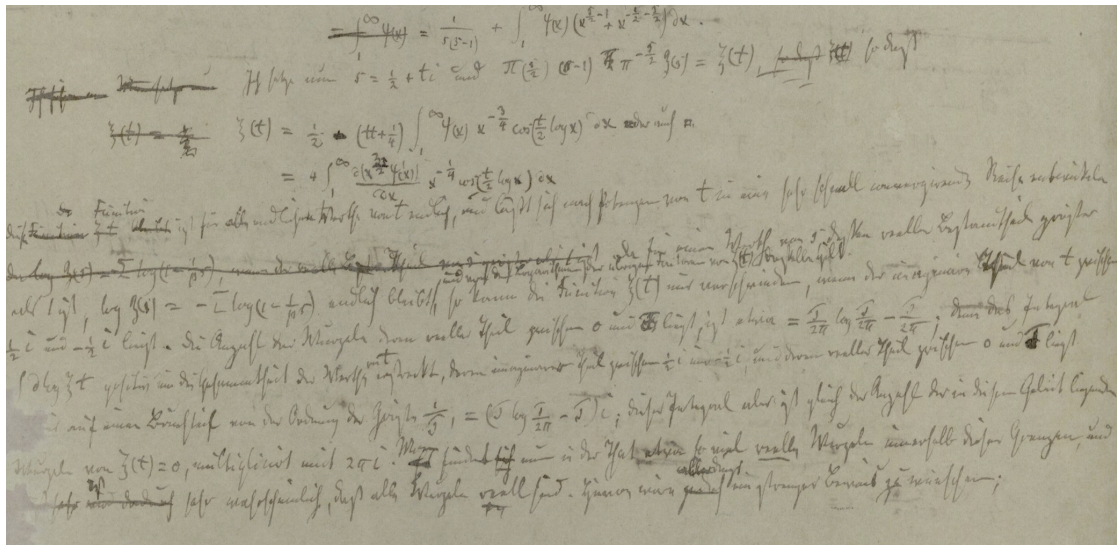 = ∫₁^∞ ψ(x) = 1/(s(s-1)) + ∫₁^∞ ψ(x) (x^{s/2-1} + x^{-s/2-1/2}) dx.
Ich setze nun s = 1/2 + ti und Π(s/2) (s-1) π^{-s/2} ζ(s) = ξ(t), so dass
ξ(t) = ξ(t) = 1/2 - (tt+1/4) ∫₁^∞ ψ(x) x^{-3/4} cos(t/2 log x) dx oder auch
= 4 ∫₁^∞ d(x^{3/2} ψ'(x))/dx x^{-1/4} cos(t/2 log x) dx
Function
diese ξt ist für alle endlichen Werthe von t endlich, und lässt sich nach Potenzen von t in eine sehr schnell convergirende Reihe entwickeln
Da für einen Werth von s, dessen reeller Bestandtheil grösser
als 1 ist, log ζ(s) = -Σ log(1-1/p^s) endlich bleibt, und von den Logarithmen der übrigen Factoren von ξ(t) dasselbe gilt, so kann die Function ξ(t) nur verschwinden, wenn der imaginäre Theil von t zwischen
1/2 i und -1/2 i liegt. Die Anzahl der Wurzeln deren reeller Theil zwischen 0 und T liegt, ist etwa = T/2π log T/2π - T/2π; denn das Integral
∫ d log ξt positiv um die Gesammtheit der Werthe von t erstreckt, deren imaginärer Theil zwischen 1/2 i und -1/2 i, und deren reeller Theil zwischen 0 und T liegt
auf einen Bruchtheil von der Ordnung der Grösse 1/T, = (T log T/2π - T) i; dieses Integral aber ist gleich der Anzahl der in diesem Gebiet liegenden
Wurzeln von ξ(t) = 0, multiplicirt mit 2πi. Man findet nun in der That etwa so viel reelle Wurzeln innerhalb dieser Grenzen und
es ist sehr wahrscheinlich, dass alle Wurzeln reell sind. Hiervon wäre allerdings ein strenger Beweis zu wünschen;